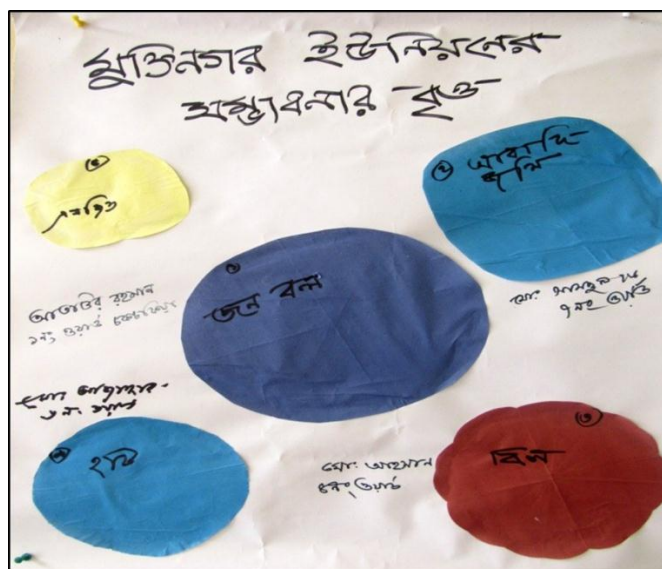 মুক্তিনগর ইউনিয়নের
সম্ভাবনার বৃত্ত
৫
এনজিও
২ আবাদি
জমি
১
জন বল
আতাউর রহমান
১নং ওয়ার্ড
মোঃ
৭নং ওয়ার্ড
মোঃ
৩নং ওয়ার্ড
৪
হাট
মোঃ আহসান
ওয়ার্ড
৩
বিল